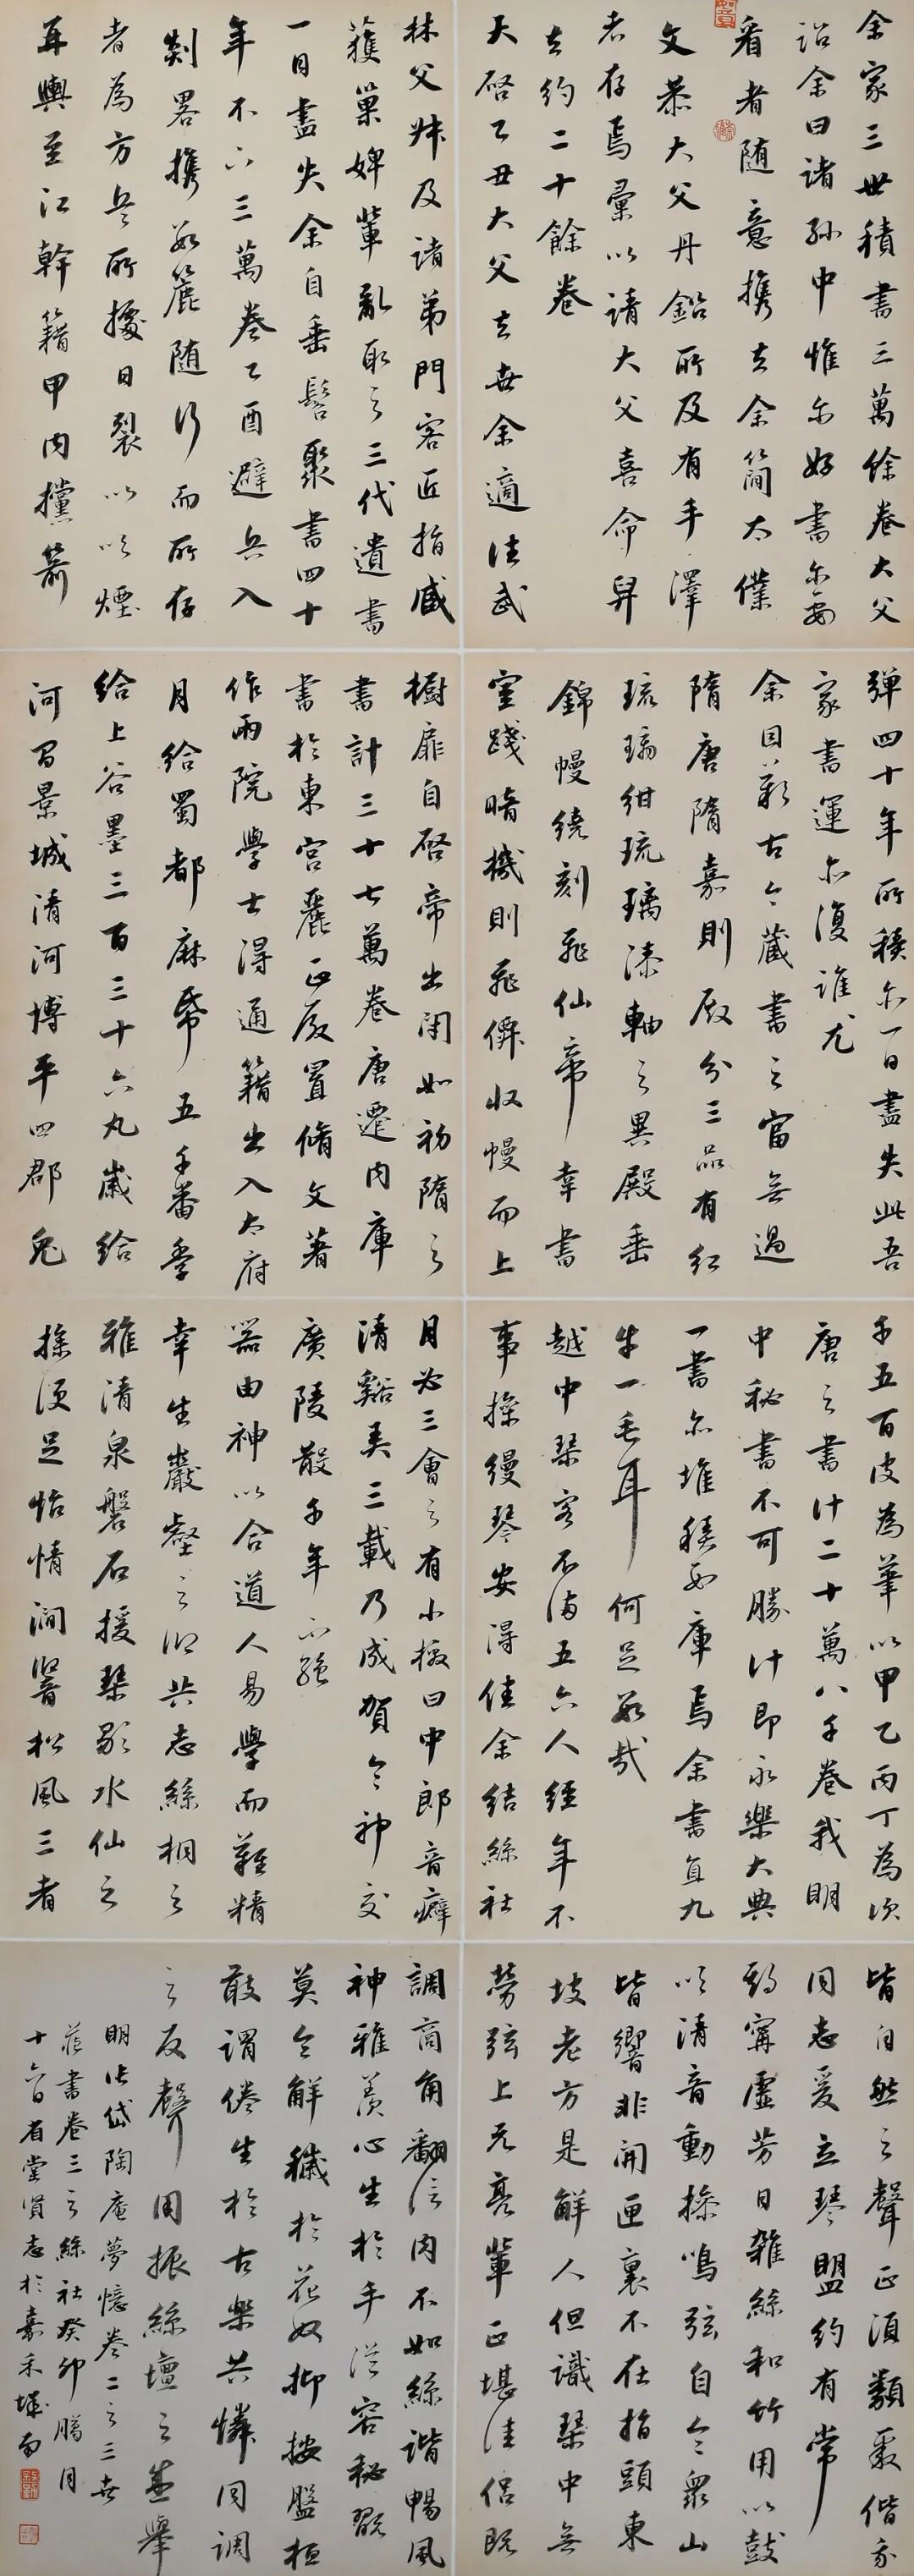 余家三世積書三萬餘卷大父
詔余曰諸孫中惟爾好書爾要
看者隨意攜去余簡太僕
文恭大父丹鉛所及有手澤
者存焉彙以請大父喜命舁
去約二十餘卷
天啓乙丑大父去世余適往武
林父叔及諸弟門客匠指臧
獲巢婢輩亂取之三代遺書
一日盡失余自垂髫聚書四十
年不下三萬卷乙酉避兵入
剡畧攜數簏隨行而所存
者為方兵所據日裂以吹煙
并輿至江幹籍甲內攩箭
彈四十年所積亦一日盡失此吾
家書運亦復誰尤
余因歎古今藏書之富無過
隋唐隋嘉則殿分三品有紅
琉璃紺琉璃漆軸之異殿垂
錦幔繞刻飛仙帝幸書
室踐暗機則飛僊收幔而上
櫥扉自啓帝出閉如初隋之
書計三十七萬卷唐遷內庫
書於東宮麗正殿置脩文著
作兩院學士得通籍出入太府
月給蜀都麻帋五千番季
給上谷墨三百三十六丸歲給
河間景城清河博平四郡兔
千五百皮為筆以甲乙丙丁為次
唐之書計二十萬八千卷我明
中秘書不可勝計即永樂大典
一書亦堆積數庫焉余書直九
牛一毛耳何足數哉
越中琴客不滿五六人經年不
事操縵琴安得佳余結絲社
月必三會之有小檄曰中郎音癖
清谿弄三載乃成賀令神交
廣陵散千年不絕
器由神以合道人易學而難精
幸生巖壑之鄉共志絲桐之
雅清泉磐石援琴歌水仙之
操便足怡情澗響松風三者
皆自然之聲正須類聚偕我
同志爰立琴盟約有常
期寧虛芳日雜絲和竹用以鼓
吹清音動操鳴弦自令眾山
皆響非關匣裏不在指頭東
坡老方是解人但識琴中無
勞弦上元亮輩正堪佳侶既
調商角翻信肉不如絲諧暢風
神雅羨心生於手從容秘翫
莫令解穢於花奴抑按盤桓
敢謂倦生於古樂共憐同調
之友聲用振絲壇之盛舉
明張岱陶庵夢憶卷二之三世
藏書卷三之絲社癸卯臘月
十六日省堂賢志於嘉禾城南